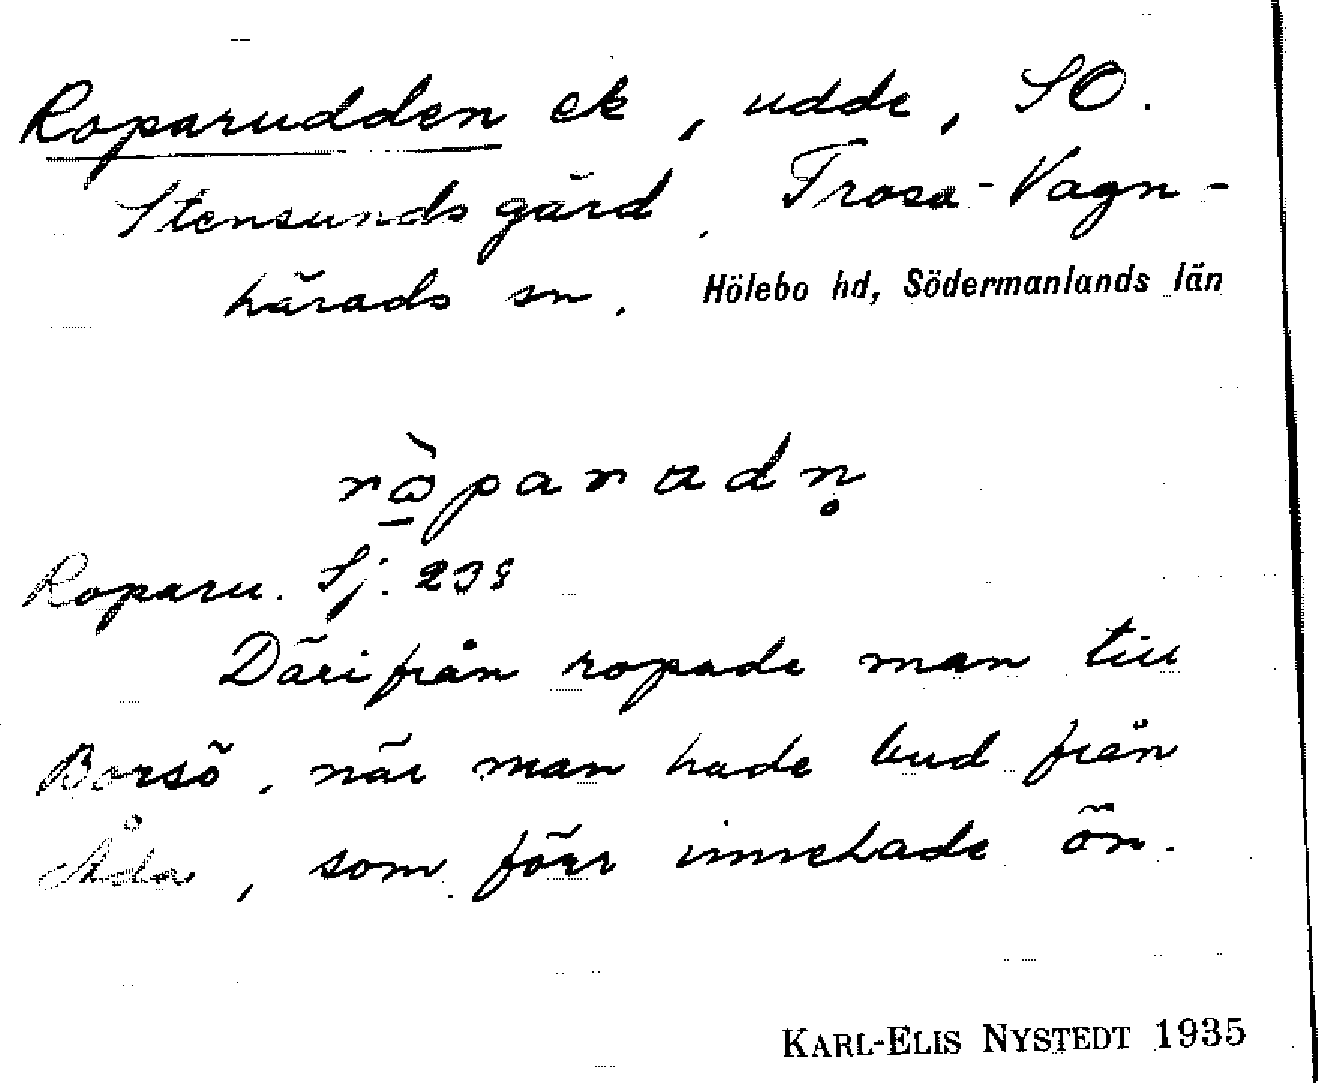 Roparudden ek, udde, SO.
Stensunds gård, Trosa-Vagn-
härads sn. Hölebo hd, Södermanlands län
rò̱paradn̥
Roparu. Sj. 238
Därifrån ropade man till
Borsö, när man hade bud från
Åda, som förr innehade ön.
KARL-ELIS NYSTEDT 1935